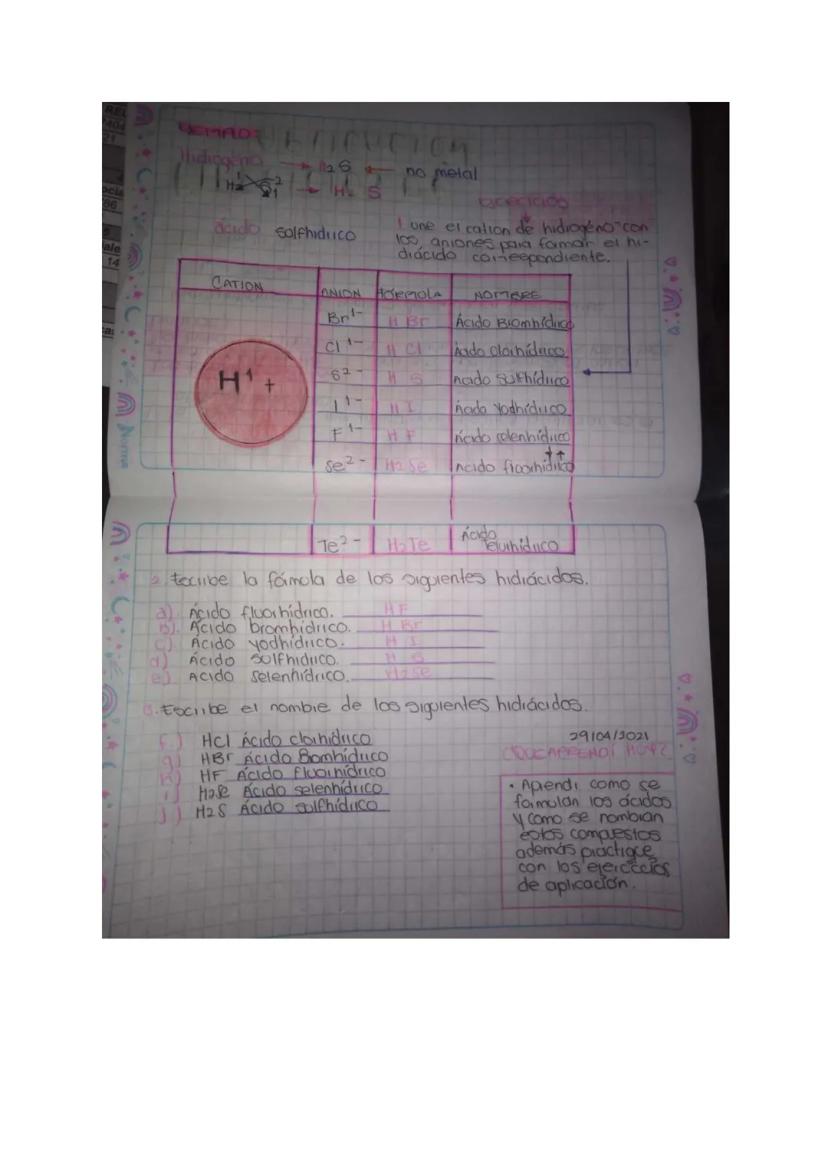 EJEMPLO:
Hidrogeno → H2S ← no metal
→ H2 S
ejercicio
ácido solfhidrico
1 une el cation de hidrogéno con
los aniones para formar el hi-
diácido correspondiente.
CATION ANION FORMULA NOMBRE
H1+
Br1- H Br Ácido Bromhídrico
Cl1- H Cl Ácido clorhídrico
S2- H S Acido sulfhídrico
I1- H I Ácido yodhídrico
F1- H F Ácido selenhídrico
Se2- H2Se Acido fluorhídrico
Te2- H2Te Ácido
telurhídrico
2. Escribe la fórmula de los siguientes hidrácidos.
a) Ácido fluorhídrico. HF
b). Ácido bromhídrico. H Br
c) Ácido yodhídrico. H I
d) Ácido solfhidrico. H S
e) Acido selenhídrico. H2Se
3. Escribe el nombre de los siguientes hidrácidos.
f.) HCl Ácido clorhídrico
g) HBr Ácido Bromhídrico
h) HF Ácido Fluorhídrico
i) H2Se Ácido selenhídrico
j) H2S Ácido solfhídrico
29/04/2021
¿QUE APRENDÍ HOY?
• Aprendi como se
formulan los ácidos
y como se nombran
estos compuestos
además practique
con los ejercicios
de aplicación.
Norma